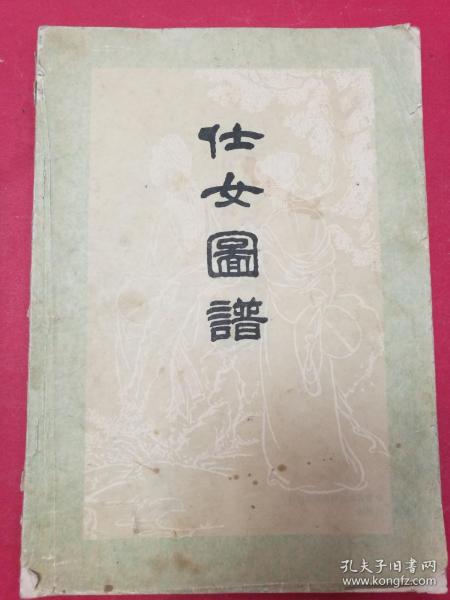 仕女圖譜
孔夫子旧书网
www.kongfz.com